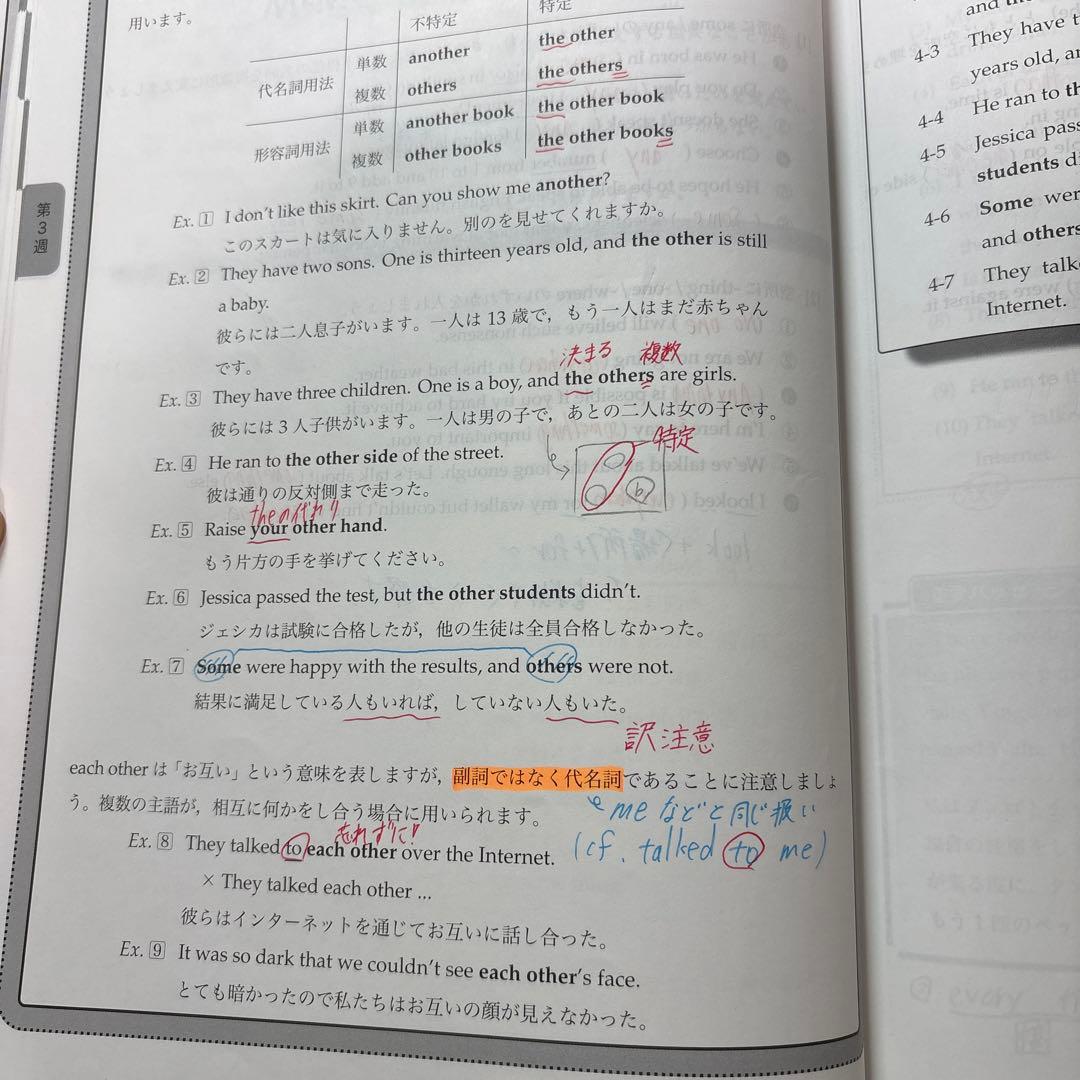 用います。
不特定 特定
代名詞用法 単数 another the other
複数 others the others
形容詞用法 単数 another book the other book
複数 other books the other books
第3週
Ex. 1 I don't like this skirt. Can you show me another?
このスカートは気に入りません。別のを見せてくれますか。
Ex. 2 They have two sons. One is thirteen years old, and the other is still
a baby.
彼らには二人息子がいます。一人は 13 歳で，もう一人はまだ赤ちゃん
です。
決まる 複数
Ex. 3 They have three children. One is a boy, and the others are girls.
彼らには 3 人子供がいます。一人は男の子で，あとの二人は女の子です。
特定
b
Ex. 4 He ran to the other side of the street.
彼は通りの反対側まで走った。
theの代わり
Ex. 5 Raise your other hand.
もう片方の手を挙げてください。
Ex. 6 Jessica passed the test, but the other students didn't.
ジェシカは試験に合格したが，他の生徒は全員合格しなかった。
Ex. 7 Some were happy with the results, and others were not.
結果に満足している人もいれば，していない人もいた。
訳注意
each other は「お互い」という意味を表しますが，副詞ではなく代名詞であることに注意しましょ
う。複数の主語が，相互に何かをし合う場合に用いられます。
meなどと同じ扱い
忘れずに!
Ex. 8 They talked to each other over the Internet.
(cf. talked to me)
× They talked each other ...
彼らはインターネットを通じてお互いに話し合った。
Ex. 9 It was so dark that we couldn't see each other's face.
とても暗かったので私たちはお互いの顔が見えなかった。
4-3 They have t
years old, an
4-4 He ran to th
4-5 Jessica pass
students di
4-6 Some wer
and others
4-7 They talk
Internet.